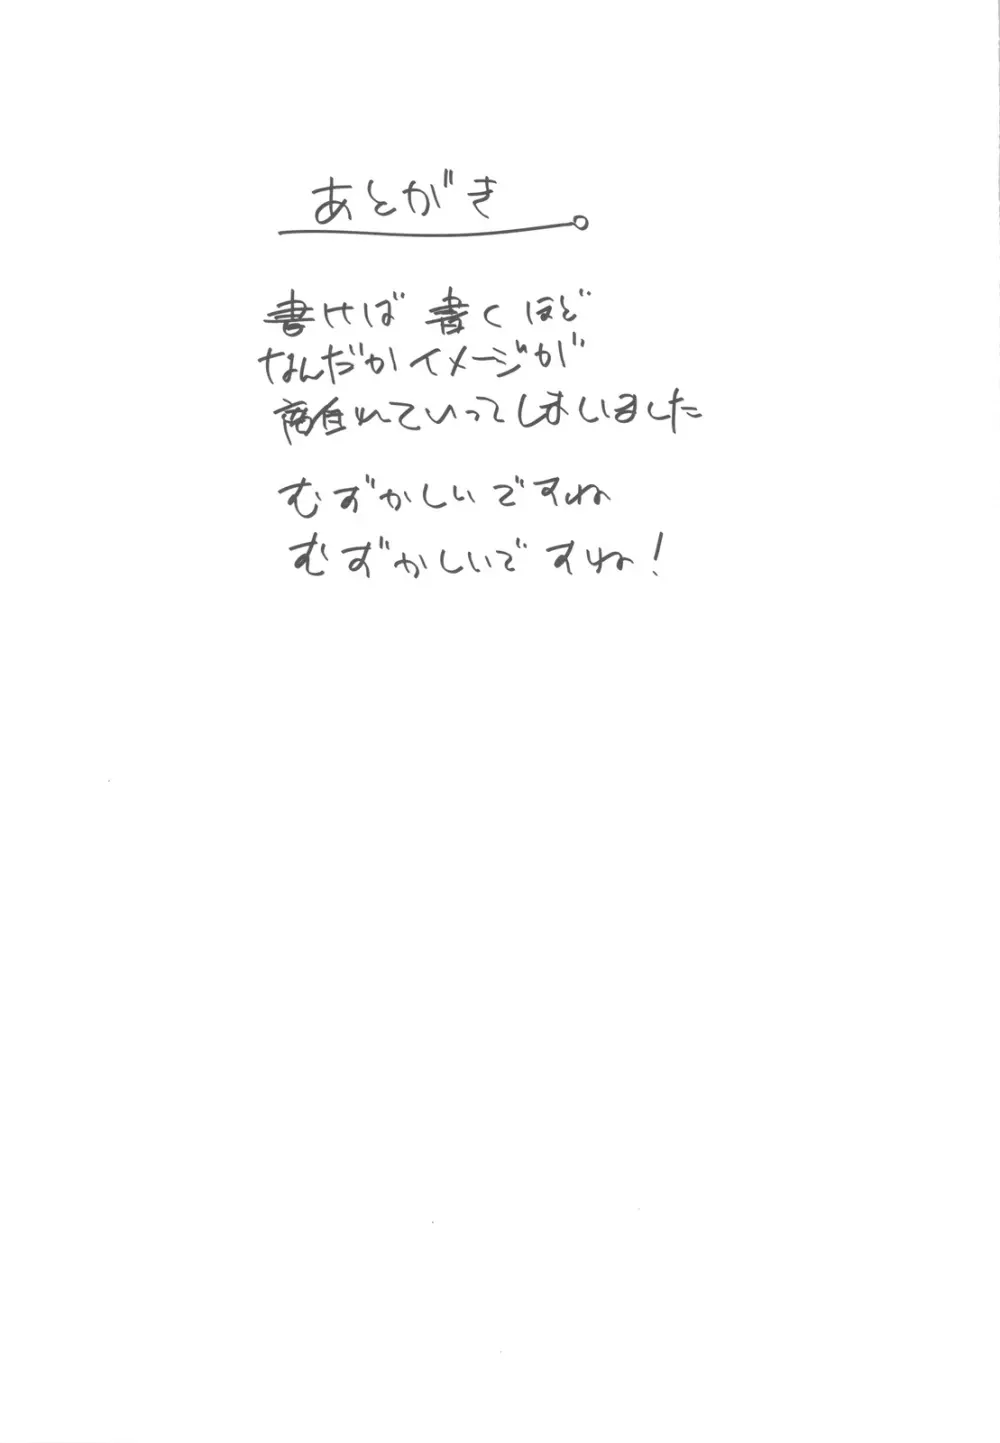 あとがき
書けば書くほど
なんだかイメージが
離れていってしまいました
むずかしいですね
むずかしいですね!